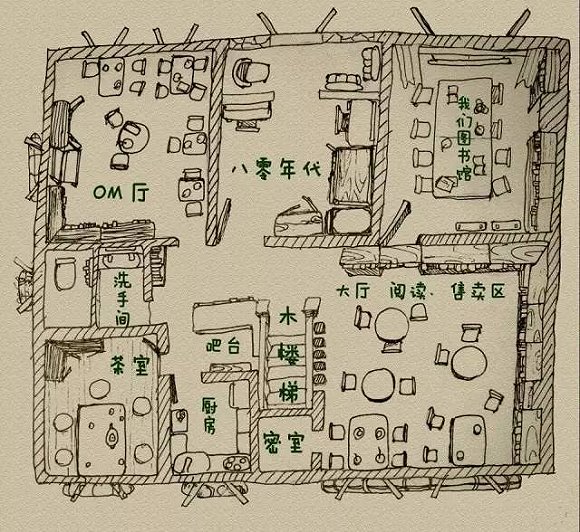 我们图书馆
OM厅
八零年代
洗手间
大厅 阅读、售卖区
木楼梯
吧台
茶室
厨房
密室